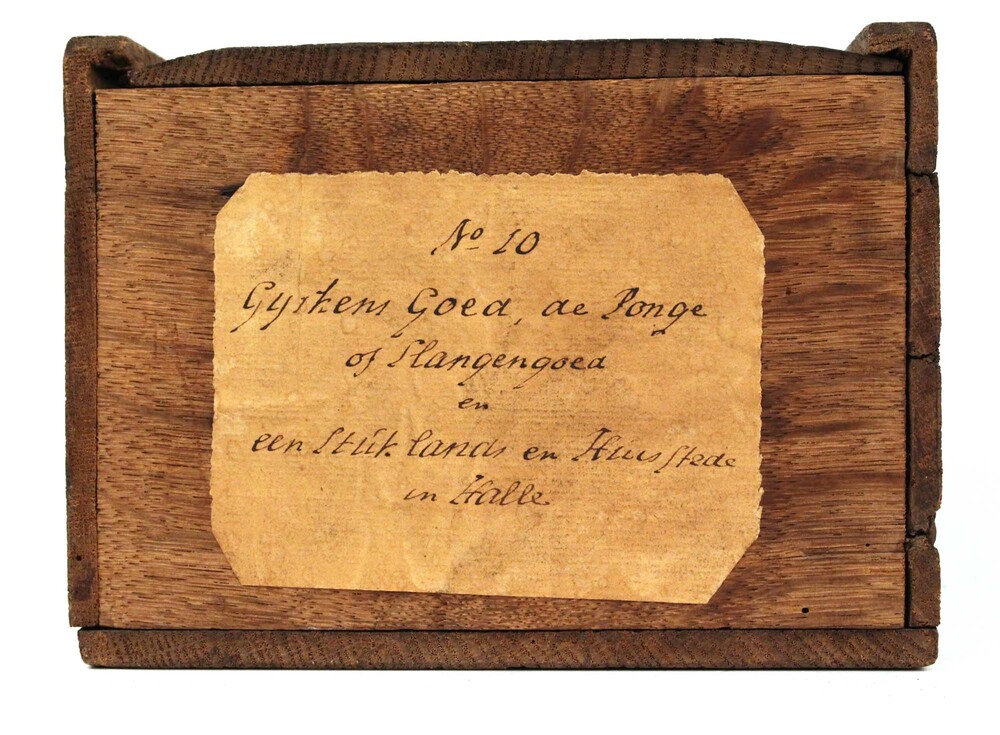 No 10
Gyskens Goed, de Ponge
of Slangengoed
en
een Stuk lands en Huusstede
in Halle